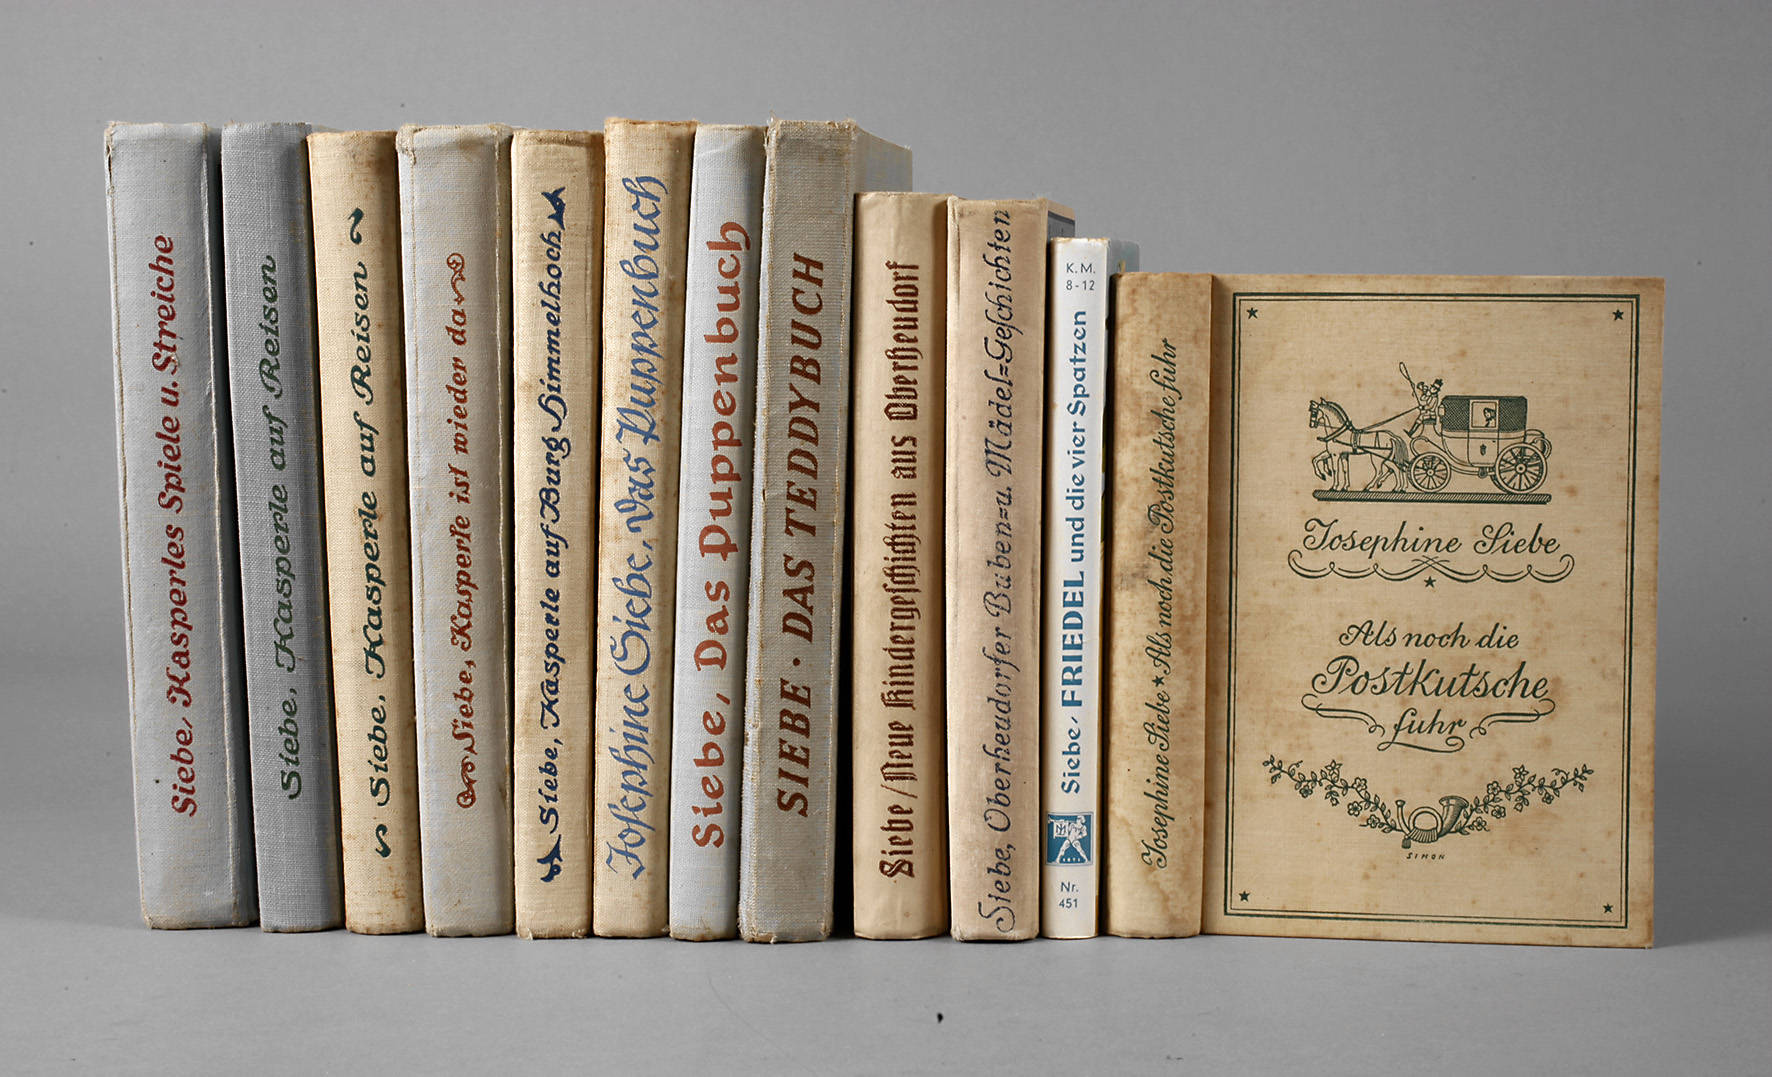 Siebe, Kasperles Spiele u. Streiche
Siebe, Kasperle auf Reisen
Siebe, Kasperle auf Reisen
Siebe, Kasperle ist wieder da
Siebe, Kasperle auf Burg Himmelhoch
Josephine Siebe, Das Puppenbuch
Siebe, Das Puppenbuch
SIEBE · DAS TEDDYBUCH
Siebe / Neue Kindergeschichten aus Oberheudorf
Siebe, Oberheudorfer Buben= u. Mädel=Geschichten
K. M.
8-12
Siebe, FRIEDEL und die vier Spatzen
1871
Nr.
451
Josephine Siebe ★ Als noch die Postkutsche fuhr
Josephine Siebe
Als noch die
Postkutsche
fuhr
SIMON